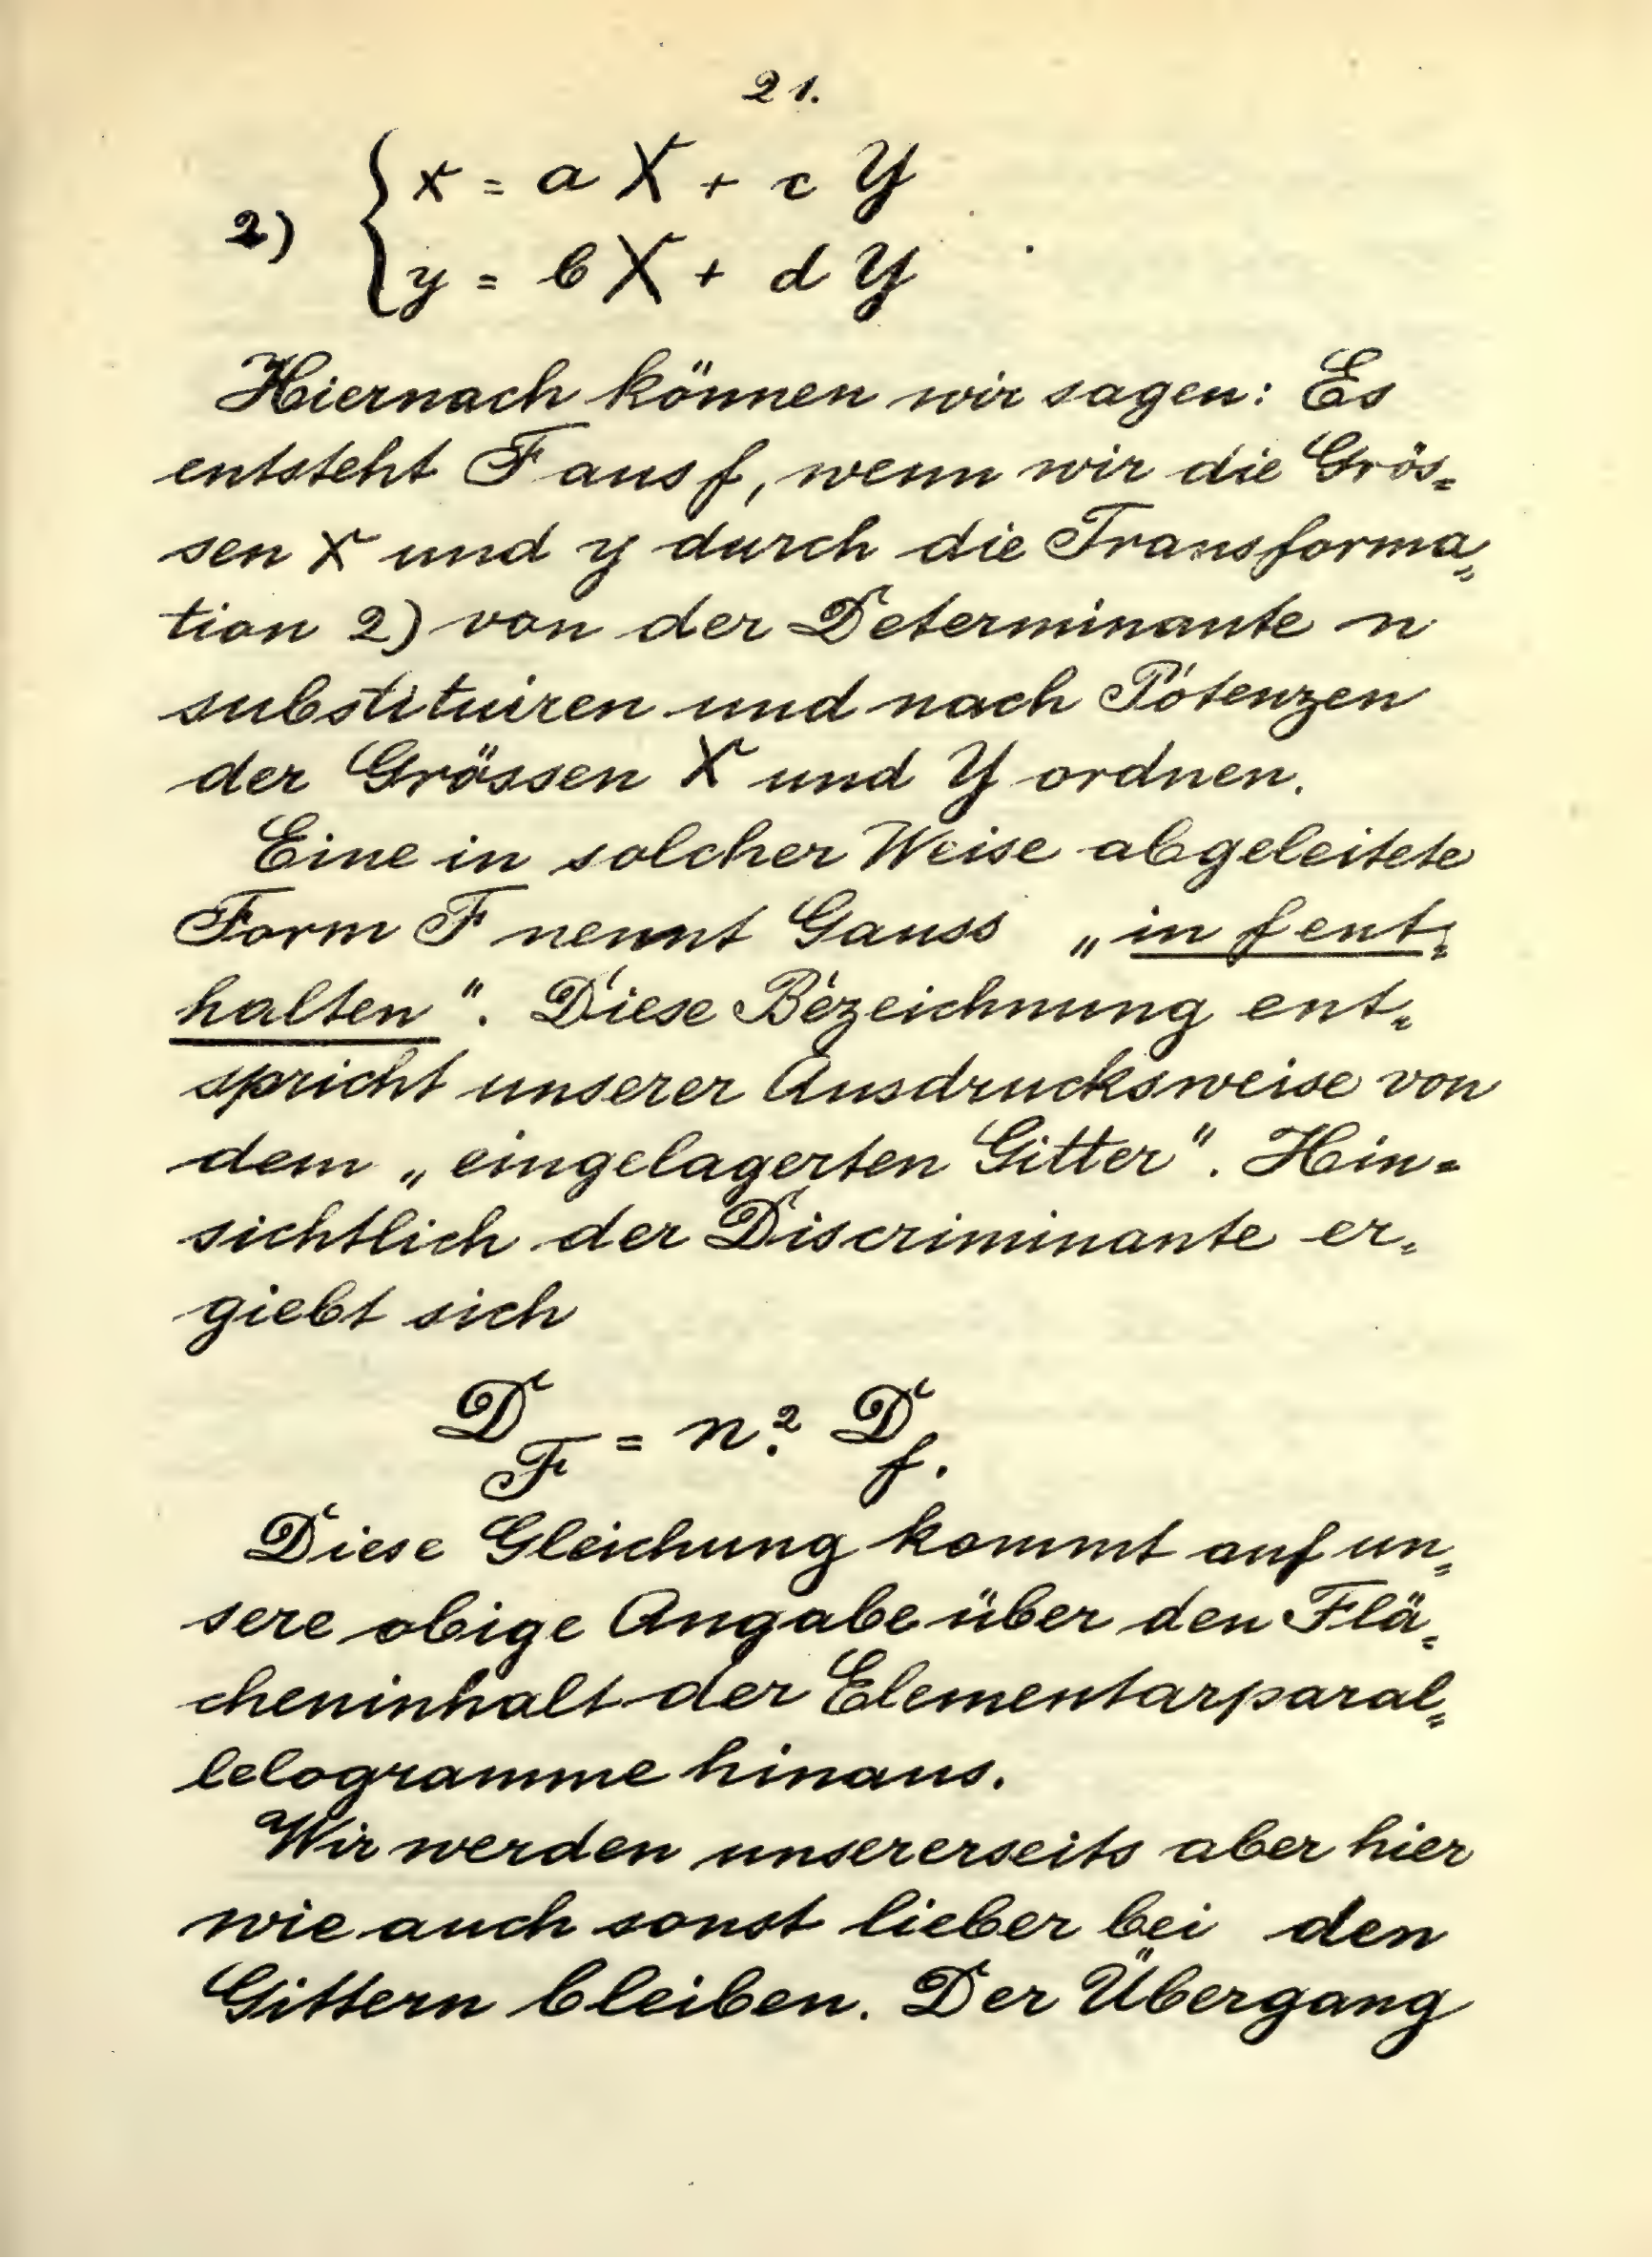 21.
2) { x = a X + c Y
y = b X + d Y
Hiernach können wir sagen: Es
entsteht F aus f, wenn wir die Grös=
sen x und y durch die Transforma=
tion 2) von der Determinante n
substituiren und nach Potenzen
der Grössen X und Y ordnen.
Eine in solcher Weise abgeleitete
Form F nennt Gauss „in f ent=
halten“. Diese Bezeichnung ent=
spricht unserer Ausdrucksweise von
dem „eingelagerten Gitter“. Hin=
sichtlich der Discriminante er=
giebt sich
D_F = n². D_f.
Diese Gleichung kommt auf un=
sere obige Angabe über den Flä=
cheninhalt der Elementarparal=
lelogramme hinaus.
Wir werden unsererseits aber hier
wie auch sonst lieber bei den
Gittern bleiben. Der Übergang